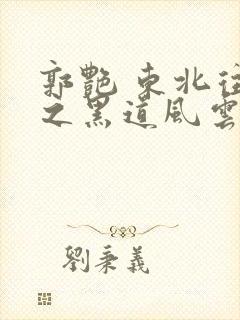 郭艷 東北往
之黑道風雲
劉秉義